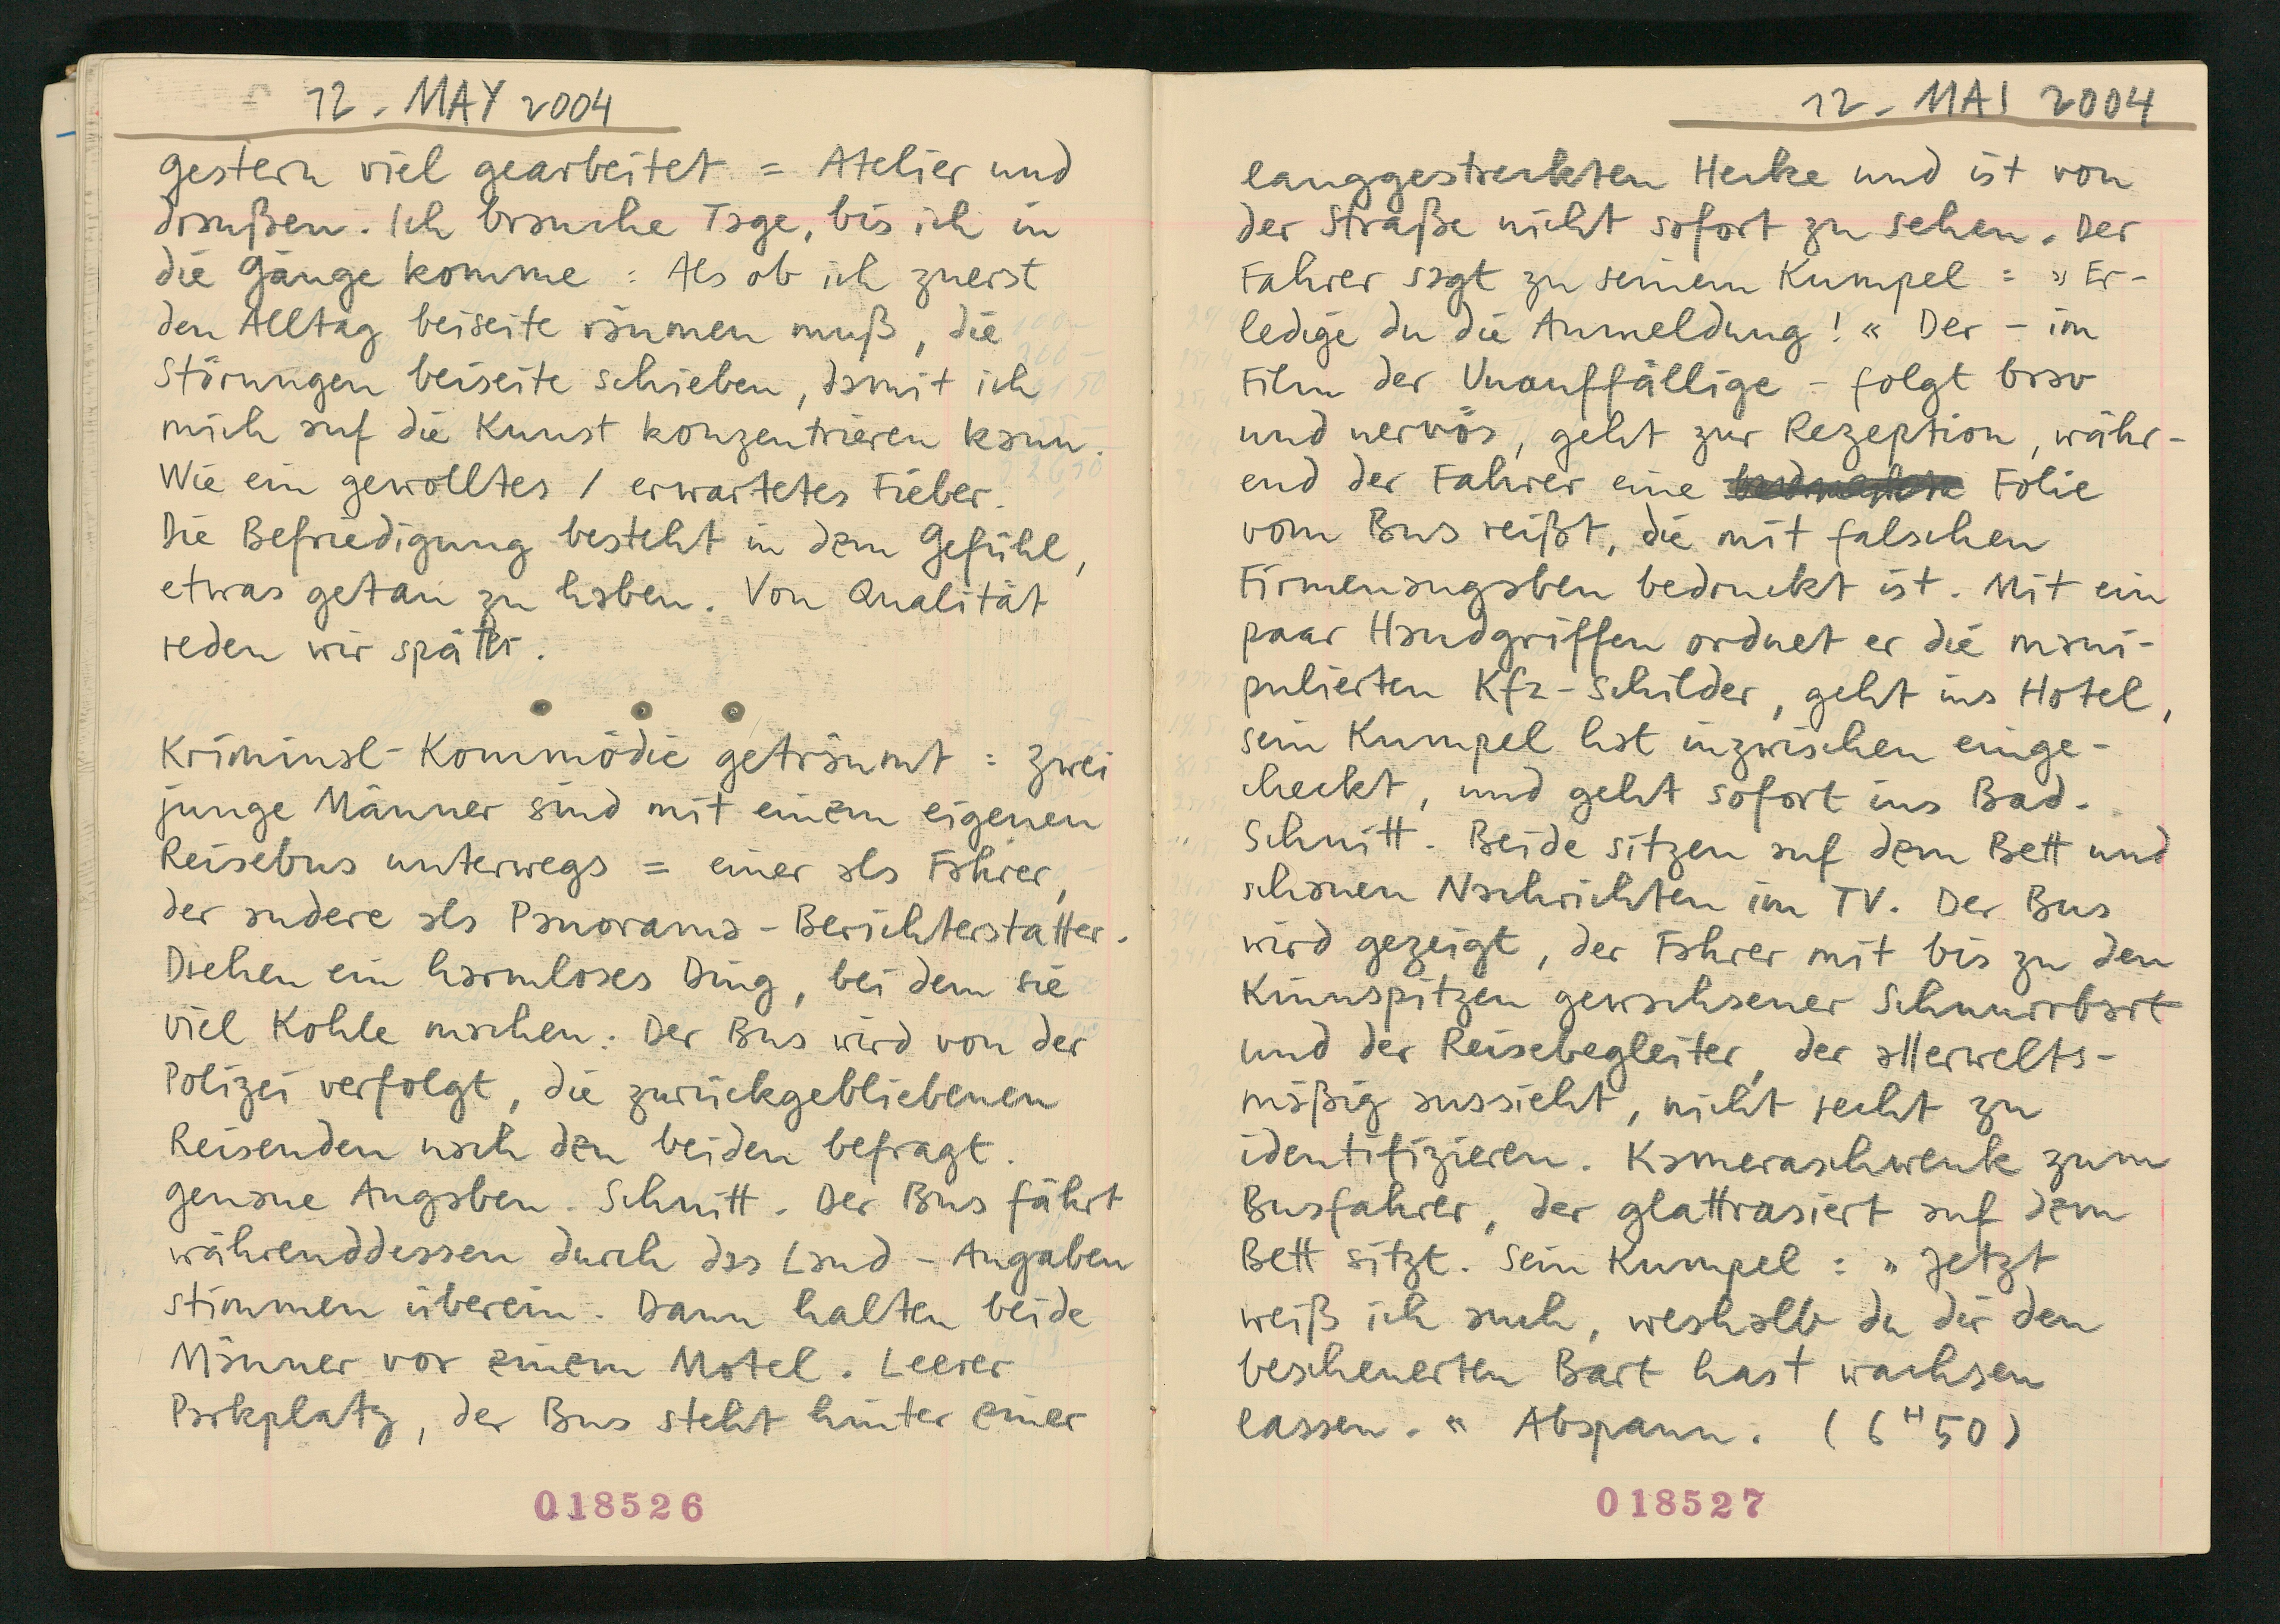 12. MAY 2004
gestern viel gearbeitet = Atelier und
draußen. Ich brauche Tage, bis ich in
die Gänge komme : Als ob ich zuerst
den Alltag beiseite räumen muß, die
Störungen beiseite schieben, damit ich
mich auf die Kunst konzentrieren kann.
Wie ein gewolltes / erwartetes Fieber.
Die Befriedigung besteht in dem Gefühl,
etwas getan zu haben. Von Qualität
reden wir später.
Kriminal-Kommödie geträumt : Zwei
junge Männer sind mit einem eigenen
Reisebus unterwegs = einer als Fahrer,
der andere als Panorama-Berichterstatter.
Drehen ein harmloses Ding, bei dem sie
viel Kohle machen : Der Bus wird von der
Polizei verfolgt, die zurückgebliebenen
Reisenden nach den beiden befragt.
genaue Angaben. Schnitt. Der Bus fährt
währenddessen durch das Land – Angaben
stimmen überein. Dann halten beide
Männer vor einem Motel. Leerer
Parkplatz, der Bus steht hinter einer
018526
12. MAI 2004
langgestreckten Hecke und ist von
der Straße nicht sofort zu sehen. Der
Fahrer sagt zu seinem Kumpel : » Er-
ledige du die Anmeldung! « Der – im
Film der Unauffällige – folgt brav
und nervös, geht zur Rezeption, währ-
end der Fahrer eine Folie
vom Bus reißt, die mit falschen
Firmenangaben bedruckt ist. Mit ein
paar Handgriffen ordnet er die mani-
pulierten Kfz-Schilder, geht ins Hotel,
sein Kumpel hat inzwischen einge-
checkt, und geht sofort ins Bad.
Schnitt. Beide sitzen auf dem Bett und
schauen Nachrichten im TV. Der Bus
wird gezeigt, der Fahrer mit bis zu den
Kinnspitzen gewachsener Schnurrbart
und der Reisebegleiter, der allerwelts-
mäßig aussieht, nicht recht zu
identifizieren. Kameraschwenk zum
Busfahrer, der glattrasiert auf dem
Bett sitzt. Sein Kumpel : » Jetzt
weiß ich auch, weshalb du dir den
bescheuerten Bart hast wachsen
lassen. « Abspann. (6 H 50)
018527